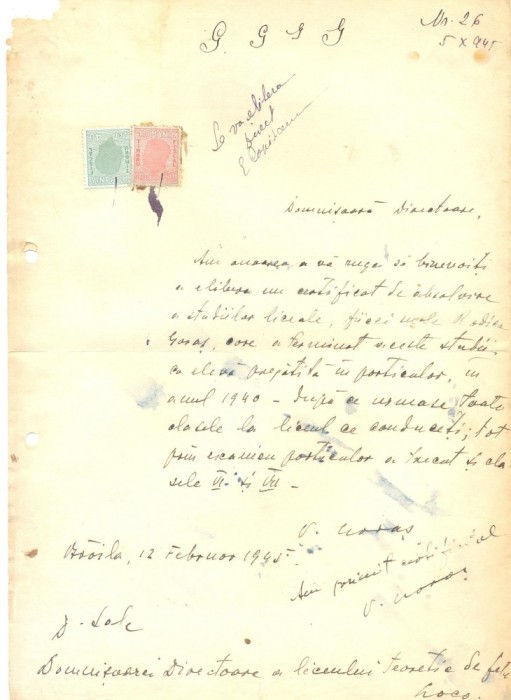 Nr. 26
5 X 945
G. G G G
Se va elibera
Domnişoară Directoare,
Am onoarea a vă ruga să binevoiţi
a elibera un certificat de absolvire
a studiilor liceale, fiicei mele Rodica
Goraş, care a terminat aceste studii
ca elevă pregătită în particular, în
anul 1940 – după ce urmase toate
clasele la liceul ce conduceţi; tot
prin examen particular a trecut şi cla-
sele VI şi VII –
Brăila, 12 Februar 1945
Am primit
D-Sale
Domnişoarei Directoare a liceului Teoretic de fete
Loco.